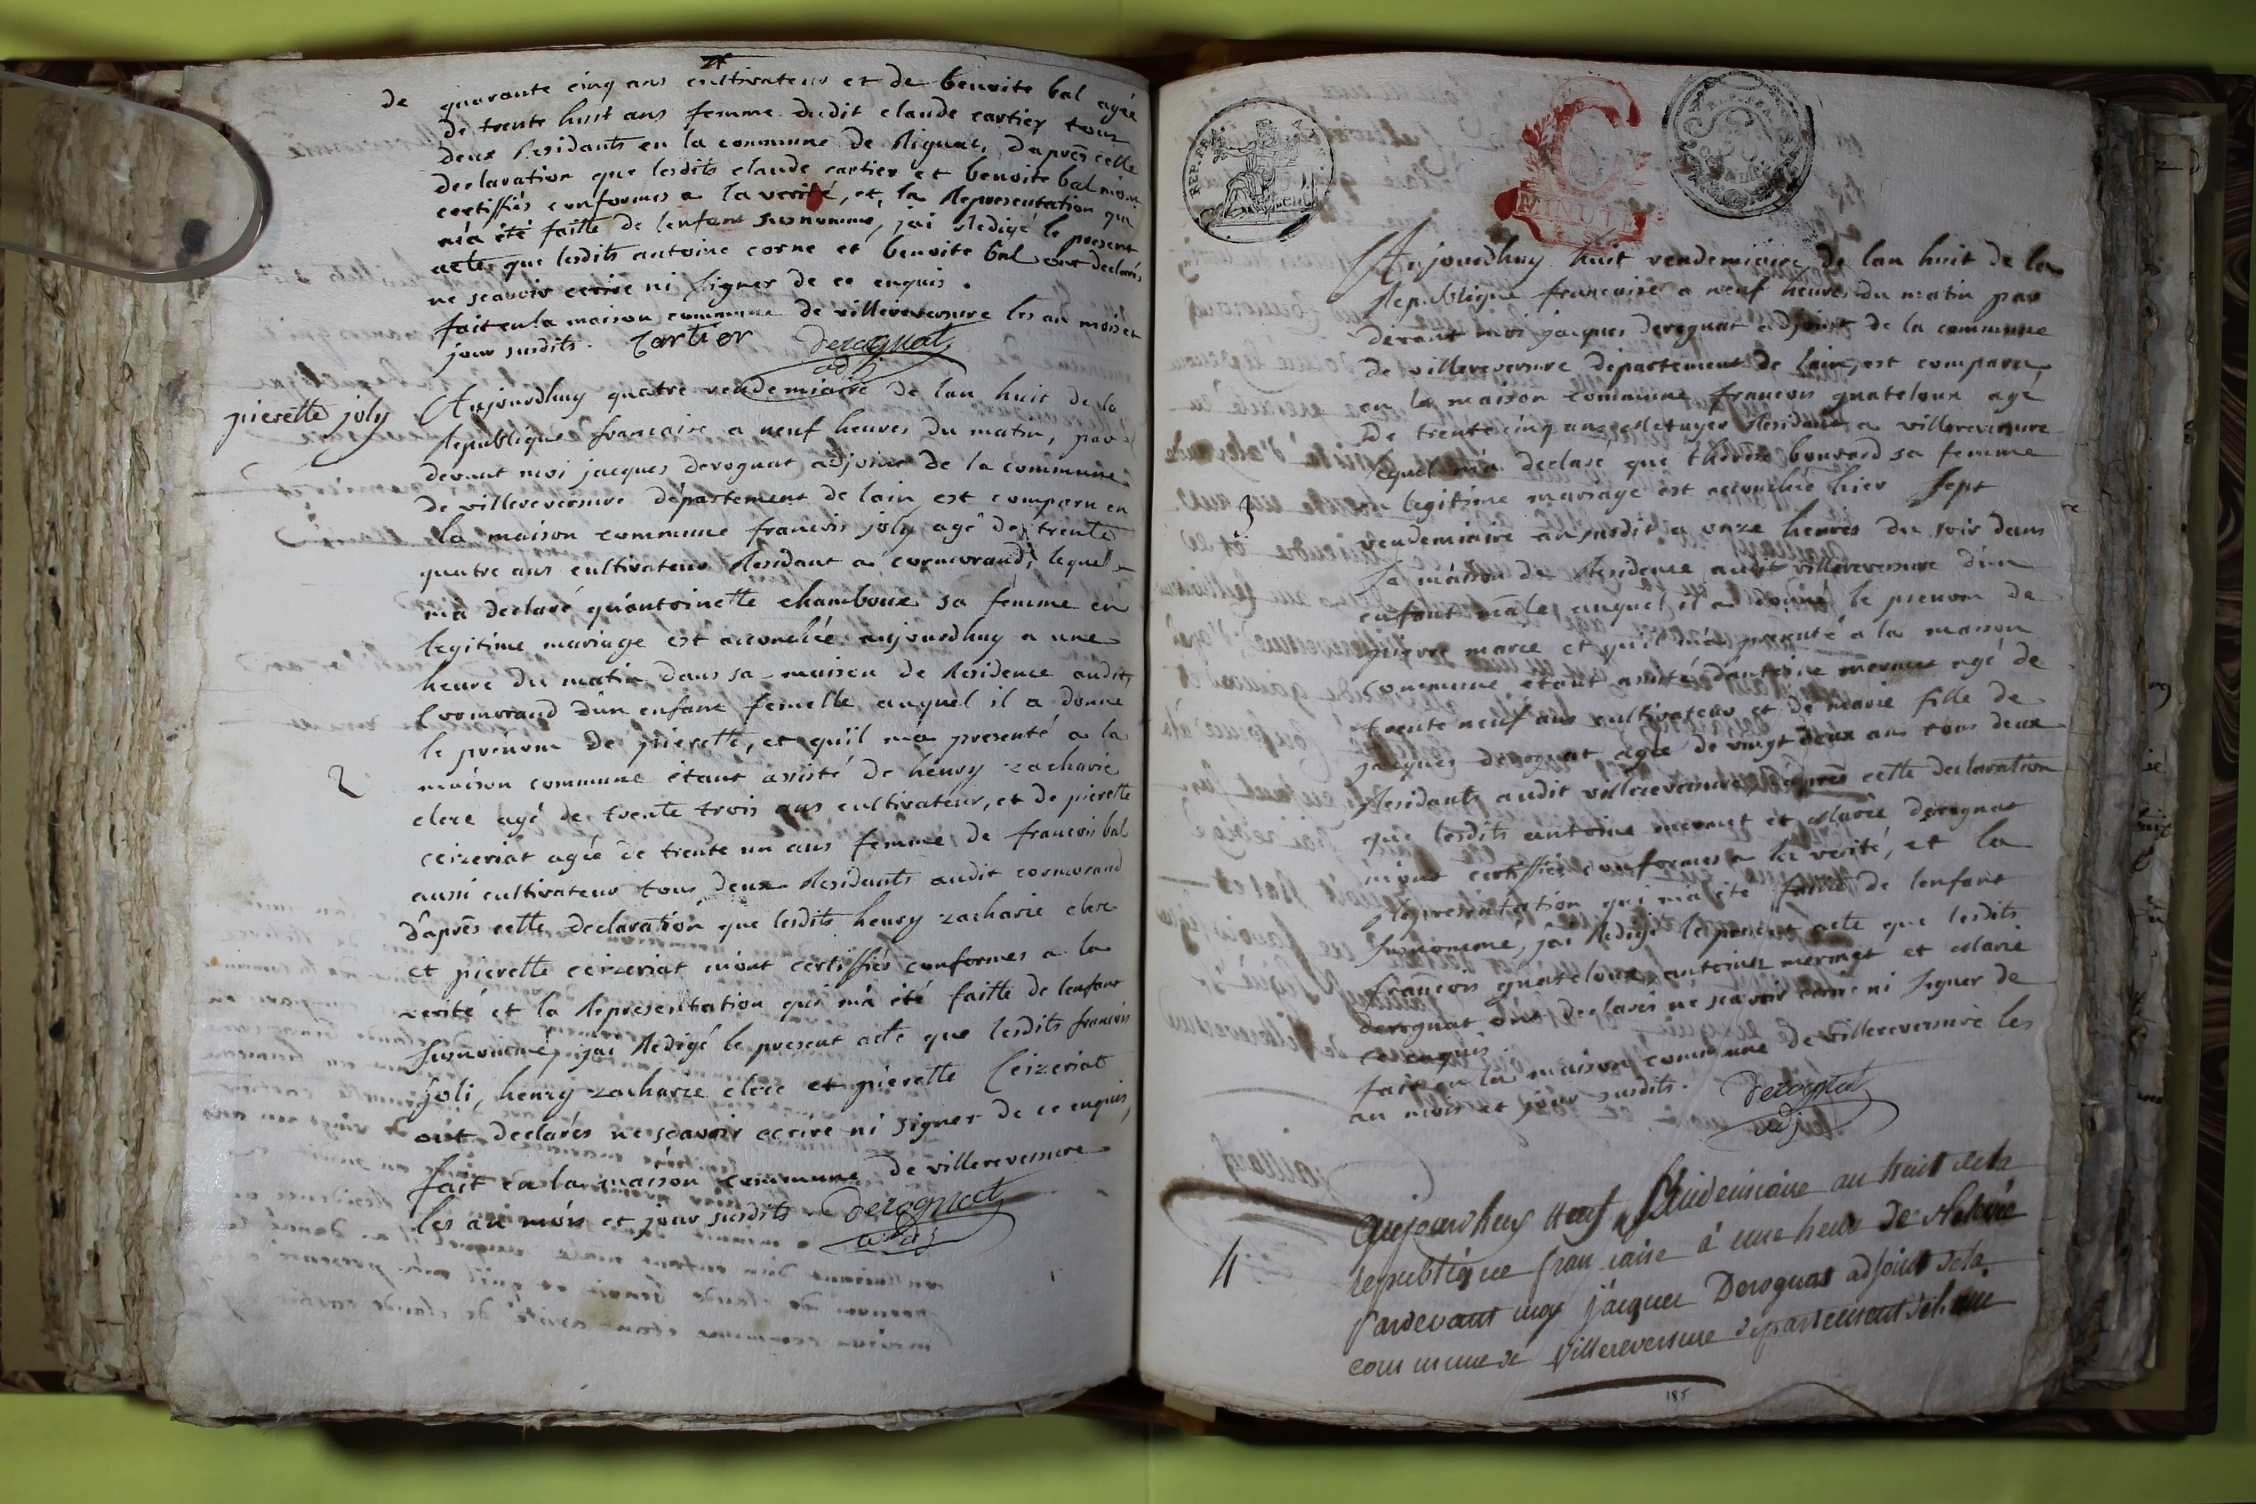 de quarante cinq ans cultivateur et de benoite bal agée
de trente huit ans femme dudit claude cartier tous
deux Residants en la commune de Rignac, d'aprés cette
declaration que lesdits claude cartier et benoite bal mont
certiffiés conformes a la verité, et la Representation qui
m'a été faitte de lenfant susnommé, jai Redigé le present
acte que lesdits antoine corne et benoite bal ont declarés
ne scavoir ecrire ni signer de ce enquis.
fait en la maison commune de villereversure les an mois et
jour susdits. Cartier derognat
adj
pierette joly
Aujourdhuy quatre vendemiaire de lan huit de la
Republique francaise a neuf heures du matin, par
devant moi jacques derognat adjoint de la commune
de villereversure département de lain est comparu en
la maison commune francois joly agé de trente
quatre ans cultivateur Residant a cormorand, lequel
m'a declaré qu'antoinette chamboux sa fémme en
legitime mariage est accouchée aujourdhuy a une
heure du matin dans sa maison de Residence audit
Cromorand d'un enfant femelle auquel il a donné
le prénom de pierette, et qu'il ma presenté a la
2
maison commune étant assisté de hénry zacharie
clere agé de trente trois ans cultivateur, et de pierette
ceizeriat agée de trente un ans femme de francois bal
aussi cultivateur tous deux Residants audit cormorand
d'aprés cette declaration que lesdits henry zacharie clere
et pierette ceizeriat m'ont certiffiés conformes a la
verité et la Representation qui m'a été faitte de lenfant
susnommé, jai Redigé le present acte que lesdits francois
joli, henry zacharie clere et pierette Ceizeriat
ont declarés ne scavoir ecrire ni signer de ce enquis,
fait en la maison commune de villereversure
les an mois et jour susdits. derognat
adj
Aujourdhuy huit vendemiaire de lan huit de la
Republique francaise a neuf heures du matin par
devant moi jacques derognat adjoint de la commune
de villereversure département de lain, est comparu
en la maison commune francois quateloux agé
de trente cinq ans Residant a villereversure
lequel m'a declaré que therese bouvard sa femme
en legitime mariage est accouchée hier sept
3
vendemiaire an susdit a onze heures du soir dans
sa maison de Residence audit villereversure d'un
enfant mâle, auquel il a donné le prenom de
pierre marie et qu'il m'a presenté a la maison
commune étant assisté d'antoine mermet agé de
trente neuf ans cultivateur et de marie fille de
jacques derognat agée de vingt deux ans tous deux
Residants audit villereversure, d'aprés cette declaration
que lesdits antoine mermet et Marie derognat
m'ont certiffiés conformes a la verité, et la
Representation qui m'a été faitte de lenfant
susnommé, jai Redigé le present acte que lesdits
francois quateloux, antoine mermet et Marie
derognat ont declarés ne scavoir ecrire ni signer de
ce enquis.
fait en la maison commune de villereversure les
an mois et jour susdits. derognat
adj
4
aujourdhuy neuf Vendemiaire an huit dela
republique francaise à une heure de Relevée
Pardevant moy jacques Derognat adjoint dela
commune de Villereversure departement delain
185